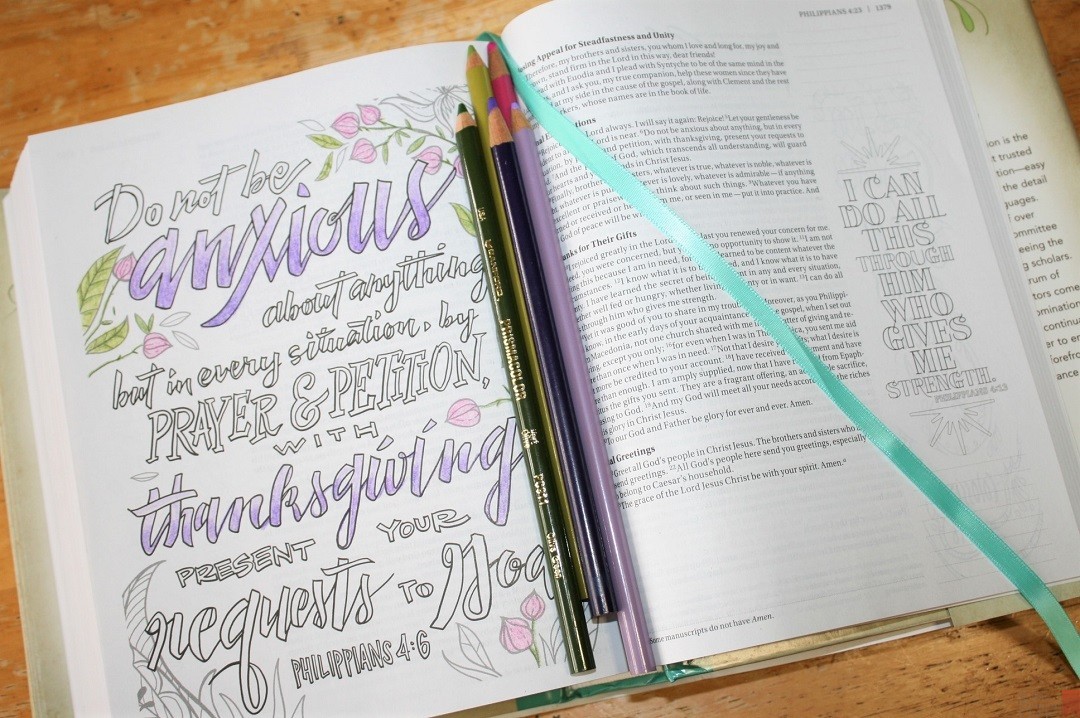 Do not be
anxious
about anything
but in every situation, by
PRAYER & PETITION,
WITH
thanksgiving
PRESENT YOUR
requests TO God
PHILIPPIANS 4:6
PRISMACOLOR
PHILIPPIANS 4:23 | 1379
Appeal for Steadfastness and Unity
my brothers and sisters, you whom I love and long for, my joy and
stand firm in the Lord in this way, dear friends!
with Euodia and I plead with Syntyche to be of the same mind in the
and I ask you, my true companion, help these women since they have
at my side in the cause of the gospel, along with Clement and the rest
whose names are in the book of life.
Lord always. I will say it again: Rejoice! 5Let your gentleness be
is near. 6Do not be anxious about anything, but in every
and petition, with thanksgiving, present your requests to
of God, which transcends all understanding, will guard
in Christ Jesus.
whatever is true, whatever is noble, whatever is
whatever is lovely, whatever is admirable—if anything
think about such things. 9Whatever you have
or received or heard from me, or seen in me—put it into practice. And
of peace will be
for Their Gifts
greatly in the Lord last you renewed your concern for me.
you were concerned, but you opportunity to show it. 11I am not
this because I am in need, for I learned to be content whatever the
12I know what it is to I know what it is to have
I have learned the secret of being in any and every situation,
well fed or hungry, whether living or in want. 13I can do all
through him who gives me strength.
it was good of you to share in my Moreover, as you Philippi-
in the early days of your acquaintance gospel, when I set out
Macedonia, not one church shared with me matter of giving and re-
except you only; 16for even when I was in you sent me aid
than once when I was in need. 17Not that I desire what I desire is
more be credited to your account. 18I have received payment and have
than enough. I am amply supplied, now that I have from Epaph-
the gifts you sent. They are a fragrant offering, an sacrifice,
to God. 19And my God will meet all your needs the riches
glory in Christ Jesus.
our God and Father be glory for ever and ever. Amen.
Greetings
all God's people in Christ Jesus. The brothers and sisters who
send greetings. 22All God's people here send you greetings, especially
belong to Caesar's household.
The grace of the Lord Jesus Christ be with your spirit. Amen.
Some manuscripts do not have Amen.
I CAN
DO ALL
THIS
THROUGH
HIM
WHO
GIVES
ME
STRENGTH.
PHILIPPIANS 4:13